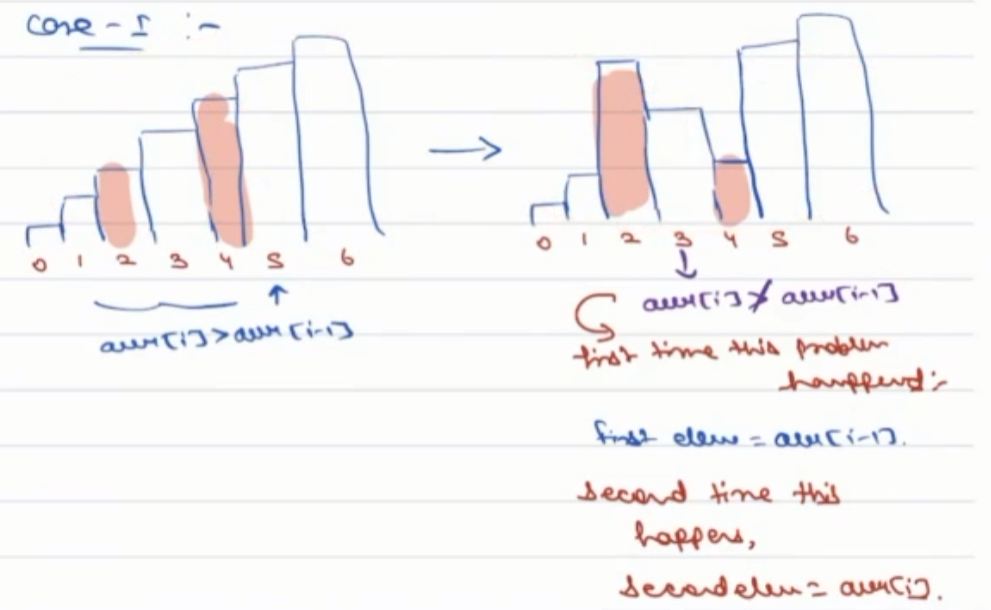 Case - I :-
0 1 2 3 4 5 6
0 1 2 3 4 5 6
arr[i] > arr[i-1]
arr[i] ≯ arr[i-1]
first time this problem
happend:-
first elem = arr[i-1].
second time this
happens,
second elem = arr[i].